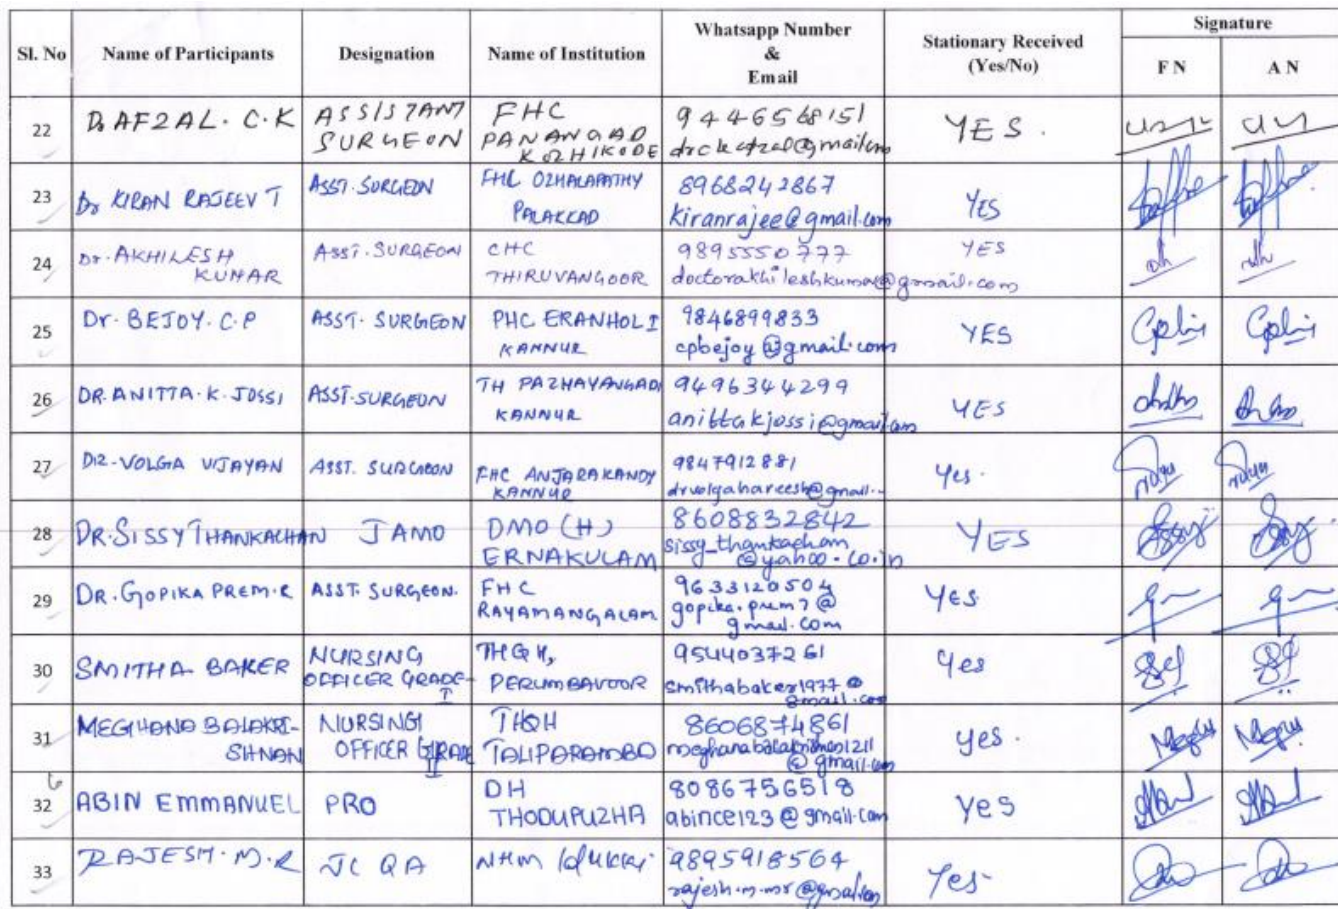 Sl. No Name of Participants Designation Name of Institution Whatsapp Number & Email Stationary Received (Yes/No) Signature
F N A N
22 Dr AFZAL. C.K ASSISTANT SURGEON FHC PANANGAD KOZHIKODE 9446568151 drckafzal@gmail.com YES.
23 Dr KIRAN RAJEEV T ASST. SURGEON FHC OZHALAPATHY PALAKKAD 8968242867 kiranrajee@gmail.com YES
24 Dr. AKHILESH KUMAR ASST. SURGEON CHC THIRUVANGOOR 9895550777 doctorakhileshkumar@gmail.com YES
25 Dr. BEJOY. C.P ASST. SURGEON PHC ERANHOLI KANNUR 9846899833 cpbejoy@gmail.com YES
26 DR. ANITTA. K. JOSSI ASST. SURGEON TH PAZHAYANGADI KANNUR 9496344299 anittakjossi@gmail.com YES
27 DR. VOLGA VIJAYAN ASST. SURGEON FHC ANJARAKANDY KANNUR 9847912881 drvolgahareesh@gmail.. Yes.
28 DR. SISSY THANKACHAN JAMO DMO (H) ERNAKULAM 8608832842 sissy_thankacham@yahoo.co.in YES
29 DR. GOPIKA PREM. R ASST. SURGEON. FHC RAYAMANGALAM 9633120504 gopika.prem7@gmail.com YES
30 SMITHA BAKER NURSING OFFICER GRADE-I THQH, PERUMBAVOOR 9544037261 smithabaker1977@gmail.com Yes
31 MEGHANA BALAKRI-SHNAN NURSING OFFICER GRADE II THQH TALIPARAMBA 8606874861 meghanabalakrishnan1211@gmail.com yes.
32 ABIN EMMANUEL PRO DH THODUPUZHA 8086756518 abince123@gmail.com yes
33 RAJESH. M. R JC QA NHM Idukki 9895918564 rajesh.m.mr@gmail.com Yes